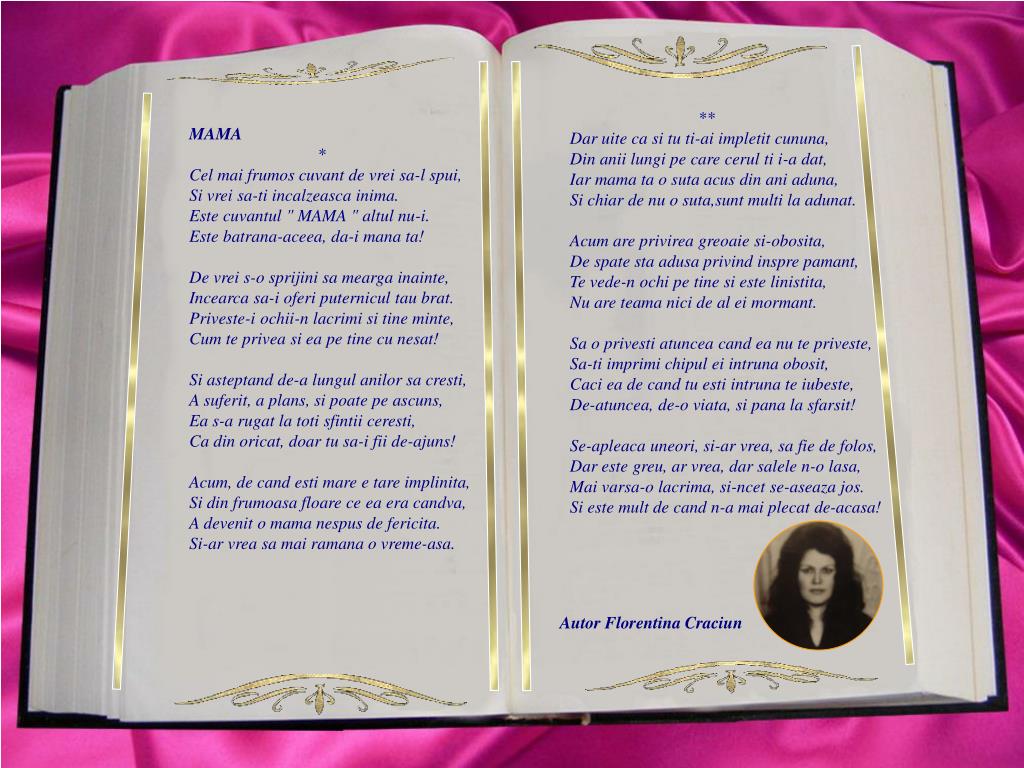 MAMA
*
Cel mai frumos cuvant de vrei sa-l spui,
Si vrei sa-ti incalzeasca inima.
Este cuvantul " MAMA " altul nu-i.
Este batrana-aceea, da-i mana ta!
De vrei s-o sprijini sa mearga inainte,
Incearca sa-i oferi puternicul tau brat.
Priveste-i ochii-n lacrimi si tine minte,
Cum te privea si ea pe tine cu nesat!
Si asteptand de-a lungul anilor sa cresti,
A suferit, a plans, si poate pe ascuns,
Ea s-a rugat la toti sfintii ceresti,
Ca din oricat, doar tu sa-i fii de-ajuns!
Acum, de cand esti mare e tare implinita,
Si din frumoasa floare ce ea era candva,
A devenit o mama nespus de fericita.
Si-ar vrea sa mai ramana o vreme-asa.
**
Dar uite ca si tu ti-ai impletit cununa,
Din anii lungi pe care cerul ti i-a dat,
Iar mama ta o suta acus din ani aduna,
Si chiar de nu o suta,sunt multi la adunat.
Acum are privirea greoaie si-obosita,
De spate sta adusa privind inspre pamant,
Te vede-n ochi pe tine si este linistita,
Nu are teama nici de al ei mormant.
Sa o privesti atuncea cand ea nu te priveste,
Sa-ti imprimi chipul ei intruna obosit,
Caci ea de cand tu esti intruna te iubeste,
De-atuncea, de-o viata, si pana la sfarsit!
Se-apleaca uneori, si-ar vrea, sa fie de folos,
Dar este greu, ar vrea, dar salele n-o lasa,
Mai varsa-o lacrima, si-ncet se-aseaza jos.
Si este mult de cand n-a mai plecat de-acasa!
Autor Florentina Craciun